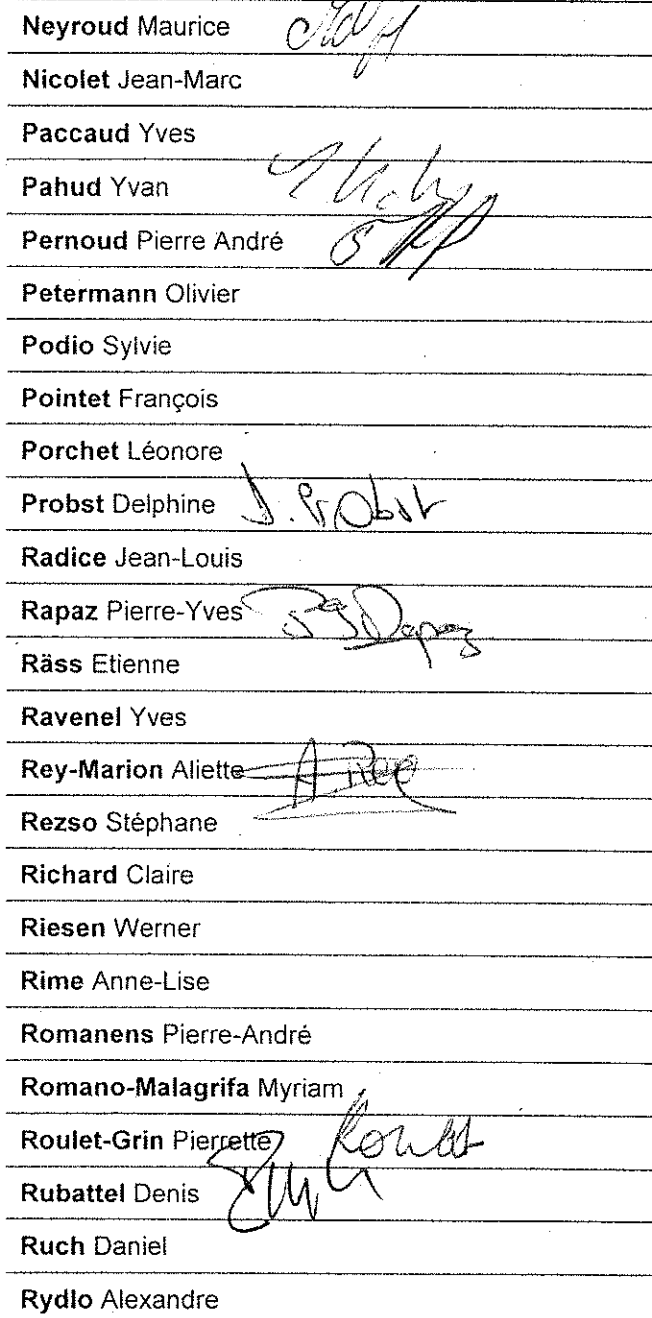 Neyroud Maurice
Nicolet Jean-Marc
Paccaud Yves
Pahud Yvan
Pernoud Pierre André
Petermann Olivier
Podio Sylvie
Pointet François
Porchet Léonore
Probst Delphine D. Probst
Radice Jean-Louis
Rapaz Pierre-Yves
Räss Etienne
Ravenel Yves
Rey-Marion Aliette A. Rey
Rezso Stéphane
Richard Claire
Riesen Werner
Rime Anne-Lise
Romanens Pierre-André
Romano-Malagrifa Myriam
Roulet-Grin Pierrette Roulet
Rubattel Denis
Ruch Daniel
Rydlo Alexandre